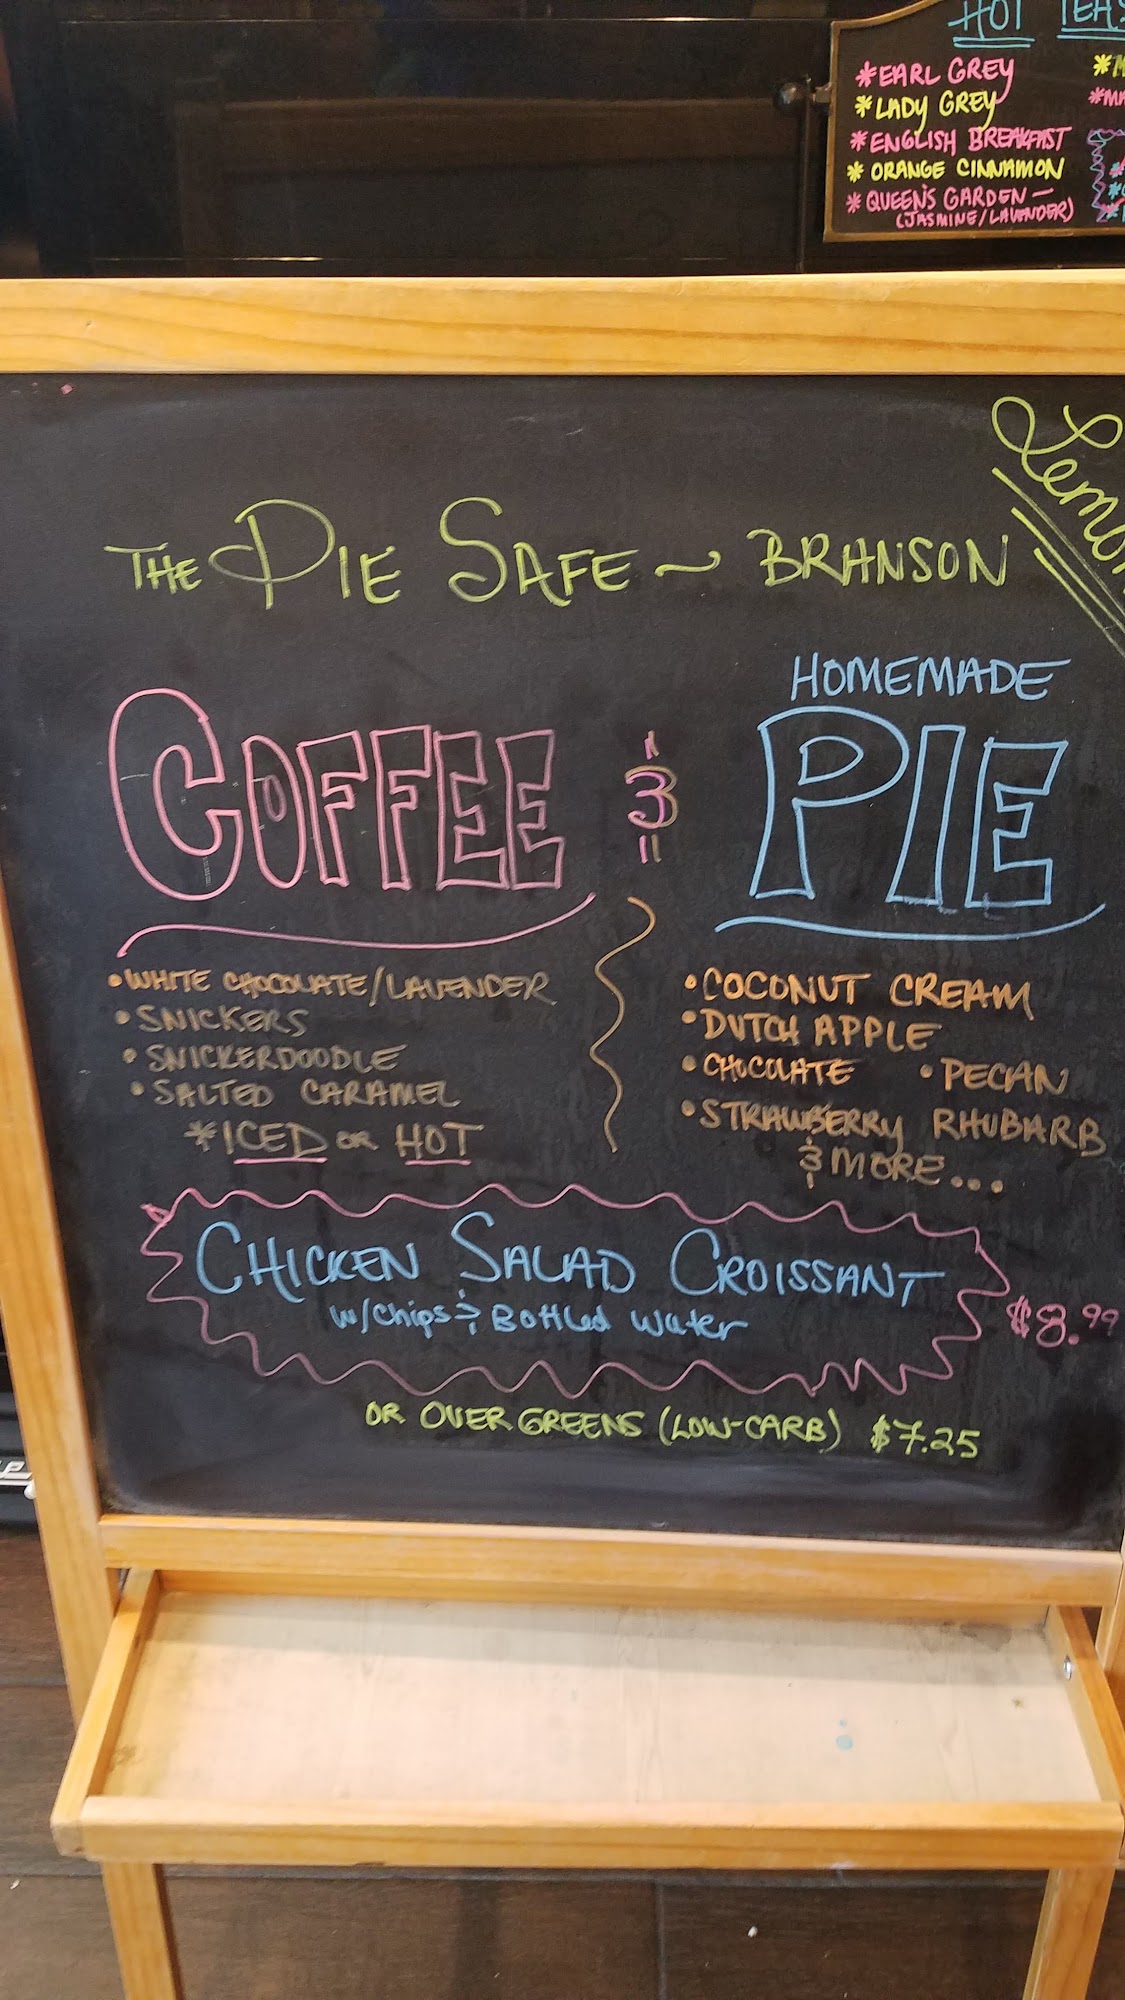 HOT TEAS
*EARL GREY
*LADY GREY
*ENGLISH BREAKFAST
*ORANGE CINNAMON
*QUEEN'S GARDEN —
(JASMINE/LAVENDER)
THE PIE SAFE ~ BRANSON
COFFEE & HOMEMADE PIE
•WHITE CHOCOLATE/LAVENDER
•SNICKERS
•SNICKERDOODLE
•SALTED CARAMEL
*ICED OR HOT
•COCONUT CREAM
•DUTCH APPLE
•CHOCOLATE •PECAN
•STRAWBERRY RHUBARB
& MORE...
CHICKEN SALAD CROISSANT
w/chips & Bottled Water
$8.99
OR OVER GREENS (LOW-CARB) $7.25